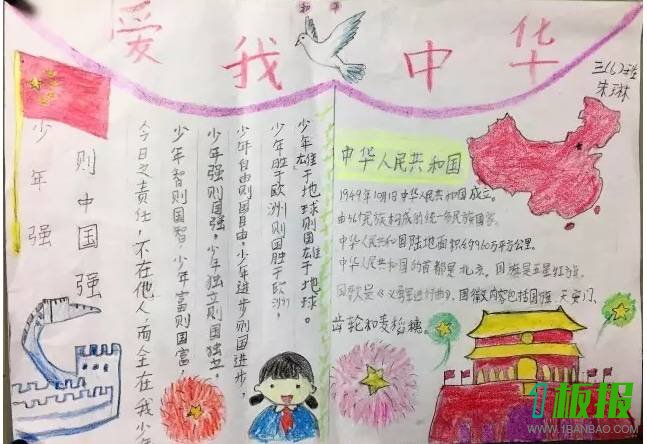 和平
爱我中华
三(6)班
朱琳
少年强
则中国强
今日之责任,不在他人,而全在我少年
少年智则国智,少年富则国富,
少年强则国强,少年独立则国独立,
少年自由则国自由,少年进步则国进步,
少年胜于欧洲则国胜于欧洲,
少年雄于地球则国雄于地球。
中华人民共和国
1949年10月1日中华人民共和国成立。
由56个民族构成的统一多民族国家。
中华人民共和国陆地面积约960万平方公里。
中华人民共和国的首都是北京。国旗是五星红旗,
国歌是《义勇军进行曲》,国徽内容包括国旗、天安门、
齿轮和麦稻穗。
1板报
WWW.1BANBAO.COM